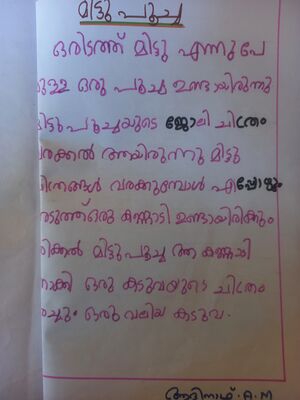 മിട്ടു പൂച്ച
ഒരിടത്ത് മിട്ടു എന്നു പേ
രുള്ള ഒരു പൂച്ച ഉണ്ടായിരുന്നു
മിട്ടു പൂച്ചയുടെ ജോലി ചിത്രം
വരക്കൽ ആയിരുന്നു മിട്ടു
ചിത്രങ്ങൾ വരക്കുമ്പോൾ എപ്പോഴും
അടുത്ത് ഒരു കണ്ണാടി ഉണ്ടായിരിക്കും
ഒരിക്കൽ മിട്ടു പൂച്ച ആ കണ്ണാടി
നോക്കി ഒരു കടുവയുടെ ചിത്രം
വരച്ചു. ഒരു വലിയ കടുവ.
ആദിനാഥ്. A. M